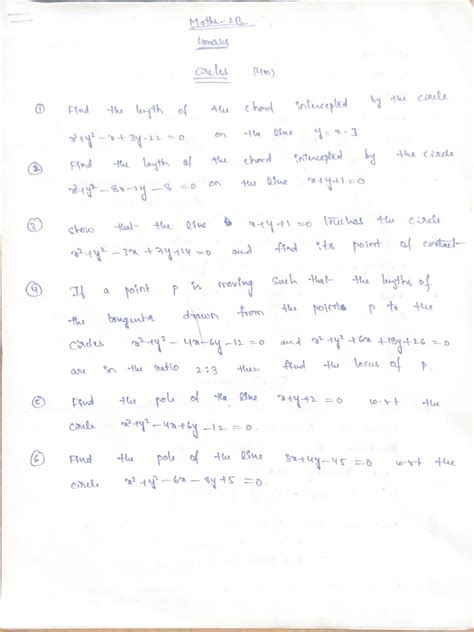 Maths-2B
4marks
Circles (4m)
① Find the length of the chord intercepted by the circle
x²+y²-x+3y-22=0 on the line y=x-3
② Find the length of the chord intercepted by the circle
x²+y²-8x-2y-8=0 on the line x+y+1=0
③ show that the line x+y+1=0 touches the circle
x²+y²-3x+7y+14=0 and find its point of contact
④ If a point P is moving such that the lengths of
the tangents drawn from the points P to the
circles x²+y²-4x-6y-12=0 and x²+y²+6x+18y+26=0
are in the ratio 2:3 then find the locus of P.
⑤ Find the pole of the line x+y+2=0 w.r.t the
circle x²+y²-4x+6y-12=0.
⑥ Find the pole of the line 3x+4y-45=0 w.r.t the
circle x²+y²-6x-8y+5=0.